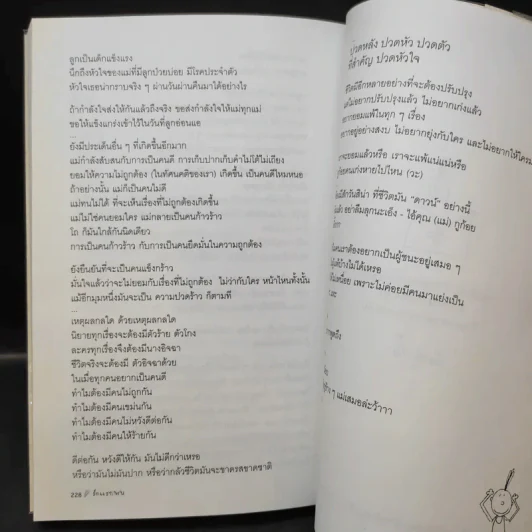 ลูกเป็นเด็กแข็งแรง
นึกถึงหัวใจของแม่ที่มีลูกป่วยบ่อย มีโรคประจำตัว
หัวใจเธอน่ากราบจริง ๆ ผ่านวันผ่านคืนมาได้อย่างไร
ถ้ากำลังใจส่งให้กันแล้วถึงจริง ขอส่งกำลังใจให้แม่ทุกแม่
ขอให้แข็งแกร่งเข้าไว้ในวันที่ลูกอ่อนแอ
...
ยังมีประเด็นอื่น ๆ ที่เกิดขึ้นอีกมาก
แม่กำลังสับสนกับการเป็นคนดี การเก็บปากเก็บคำไม่โต้ไม่เถียง
ยอมให้ความไม่ถูกต้อง (ในทัศนคติของเรา) เกิดขึ้น เป็นคนดีไหมหนอ
ถ้าอย่างนั้น แม่ก็เป็นคนไม่ดี
แม่ทนไม่ได้ ที่จะเห็นเรื่องที่ไม่ถูกต้องเกิดขึ้น
แม่ไม่ใช่คนยอมใคร แม่กลายเป็นคนก้าวร้าว
โถ ก็มันใกล้กันนิดเดียว
การเป็นคนก้าวร้าว กับการเป็นคนยึดมั่นในความถูกต้อง
ยังยืนยันที่จะเป็นคนแข็งกร้าว
มั่นใจแล้วว่าจะไม่ยอมกับเรื่องที่ไม่ถูกต้อง ไม่ว่ากับใคร หน้าไหนทั้งนั้น
แม้อีกมุมหนึ่งมันจะเป็น ความปวดร้าว ก็ตามที
...
เหตุผลกลใด ด้วยเหตุผลกลใด
นิยายทุกเรื่องจะต้องมีตัวร้าย ตัวโกง
ละครทุกเรื่องจึงต้องมีนางอิจฉา
ชีวิตจริงจะต้องมี ตัวอิจฉาด้วย
ในเมื่อทุกคนอยากเป็นคนดี
ทำไมต้องมีคนไม่ถูกกัน
ทำไมต้องมีคนเขม่นกัน
ทำไมต้องมีคนไม่หวังดีต่อกัน
ทำไมต้องมีคนให้ร้ายกัน
ดีต่อกัน หวังดีให้กัน มันไม่ดีกว่าเหรอ
หรือว่ามันไม่มันปาก หรือว่ากลัวชีวิตมันจะขาดรสขาดชาติ
228
ปวดหลัง ปวดหัว ปวดตัว
ที่สำคัญ ปวดหัวใจ
มีอีกหลายอย่างที่จะต้องปรับปรุง
ไม่อยากปรับปรุงแล้ว ไม่อยากเก่งแล้ว
ยอมแพ้ในทุก ๆ เรื่อง
อยู่อย่างสงบ ไม่อยากยุ่งกับใคร และไม่อยากให้ใครมา
จะยอมแล้วหรือ เราจะแพ้แน่แน่หรือ
คนเก่งหายไปไหน (วะ)
ที่ชีวิตมัน "ดาวน์" อย่างนี้
อย่าลืมลุกนะเอ็ง - ไอ้คุณ (แม่) กูก้อย
เราต้องอยากเป็นผู้ชนะอยู่เสมอ ๆ
บ้างไม่ได้เหรอ
เหนื่อย เพราะไม่ค่อยมีคนมาแย่งเป็น
ๆ แม่เสมอล่ะว้าาา